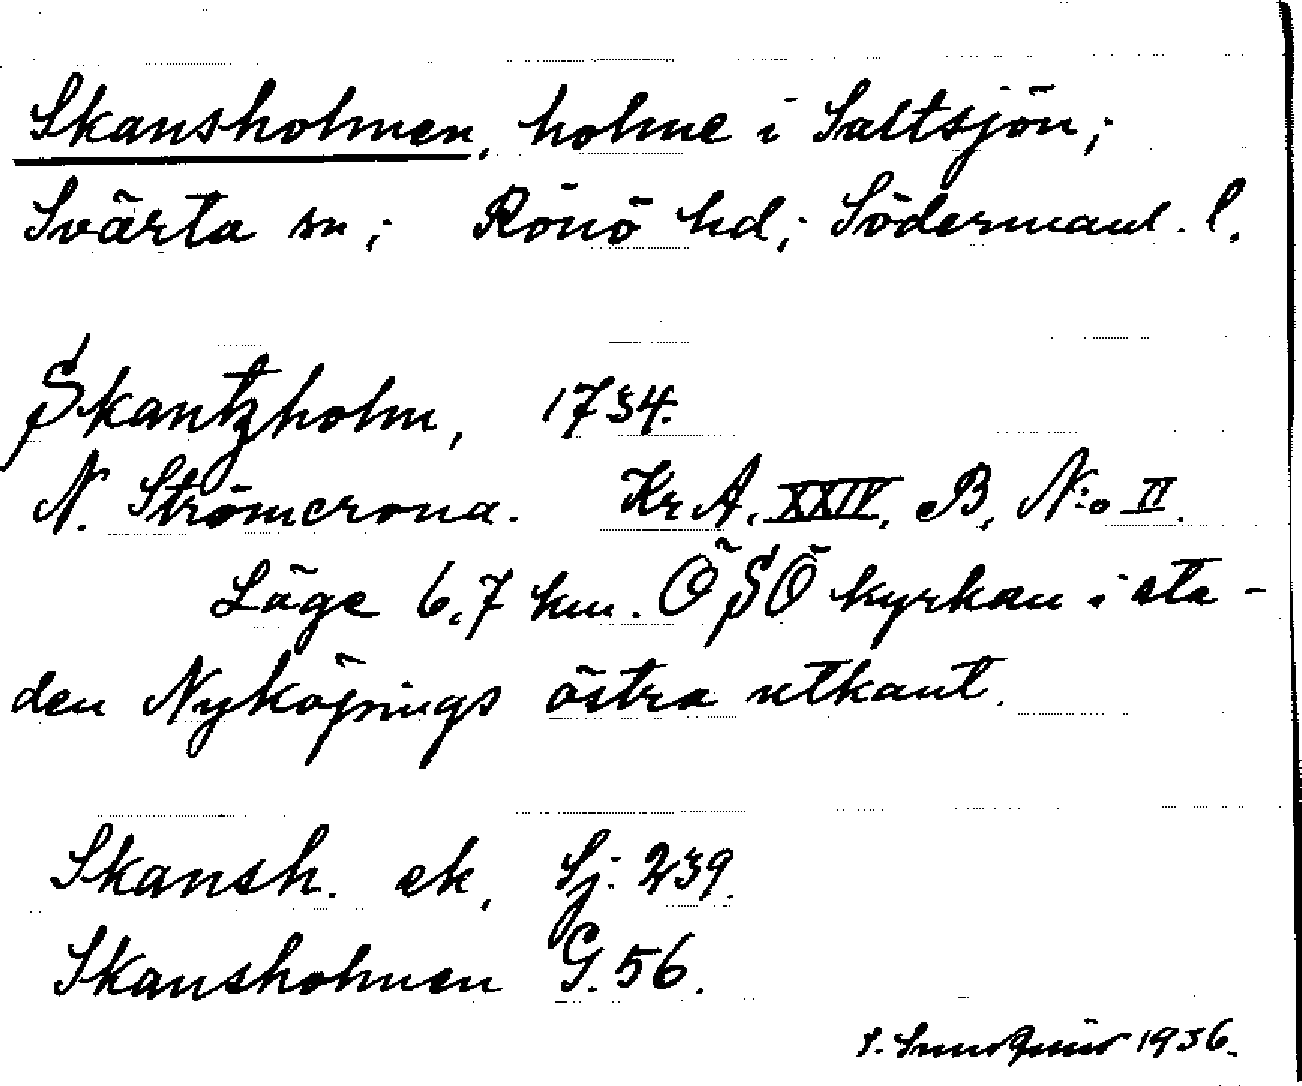 Skansholmen, holme i Saltsjön;
Svärta sn; Rönö hd; Södermanl. l.
Skantzholm, 1734.
N. Strömcrona. Kr A, XXIV, B, N:o II.
Läge 6,7 km. ÖSÖ kyrkan i sta-
den Nyköpings östra utkant.
Skansh. ek, Sj: 239.
Skansholmen G. 56.
1936.